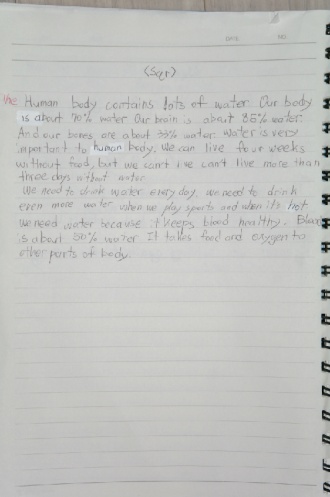 DATE NO.
The Human body contains lots of water. Our body
is about 70% water. Our brain is about 85% water.
And our bones are about 35% water. Water is very
important to human body. We can live four weeks
without food, but we can't we can't live more than
three days without water.
We need to drink water every day. we need to drink
even more water when we play sports and when it's hot
we need water because it keeps blood healthy. Blood
is about 80% water. It takes food and oxygen to
other parts of body.